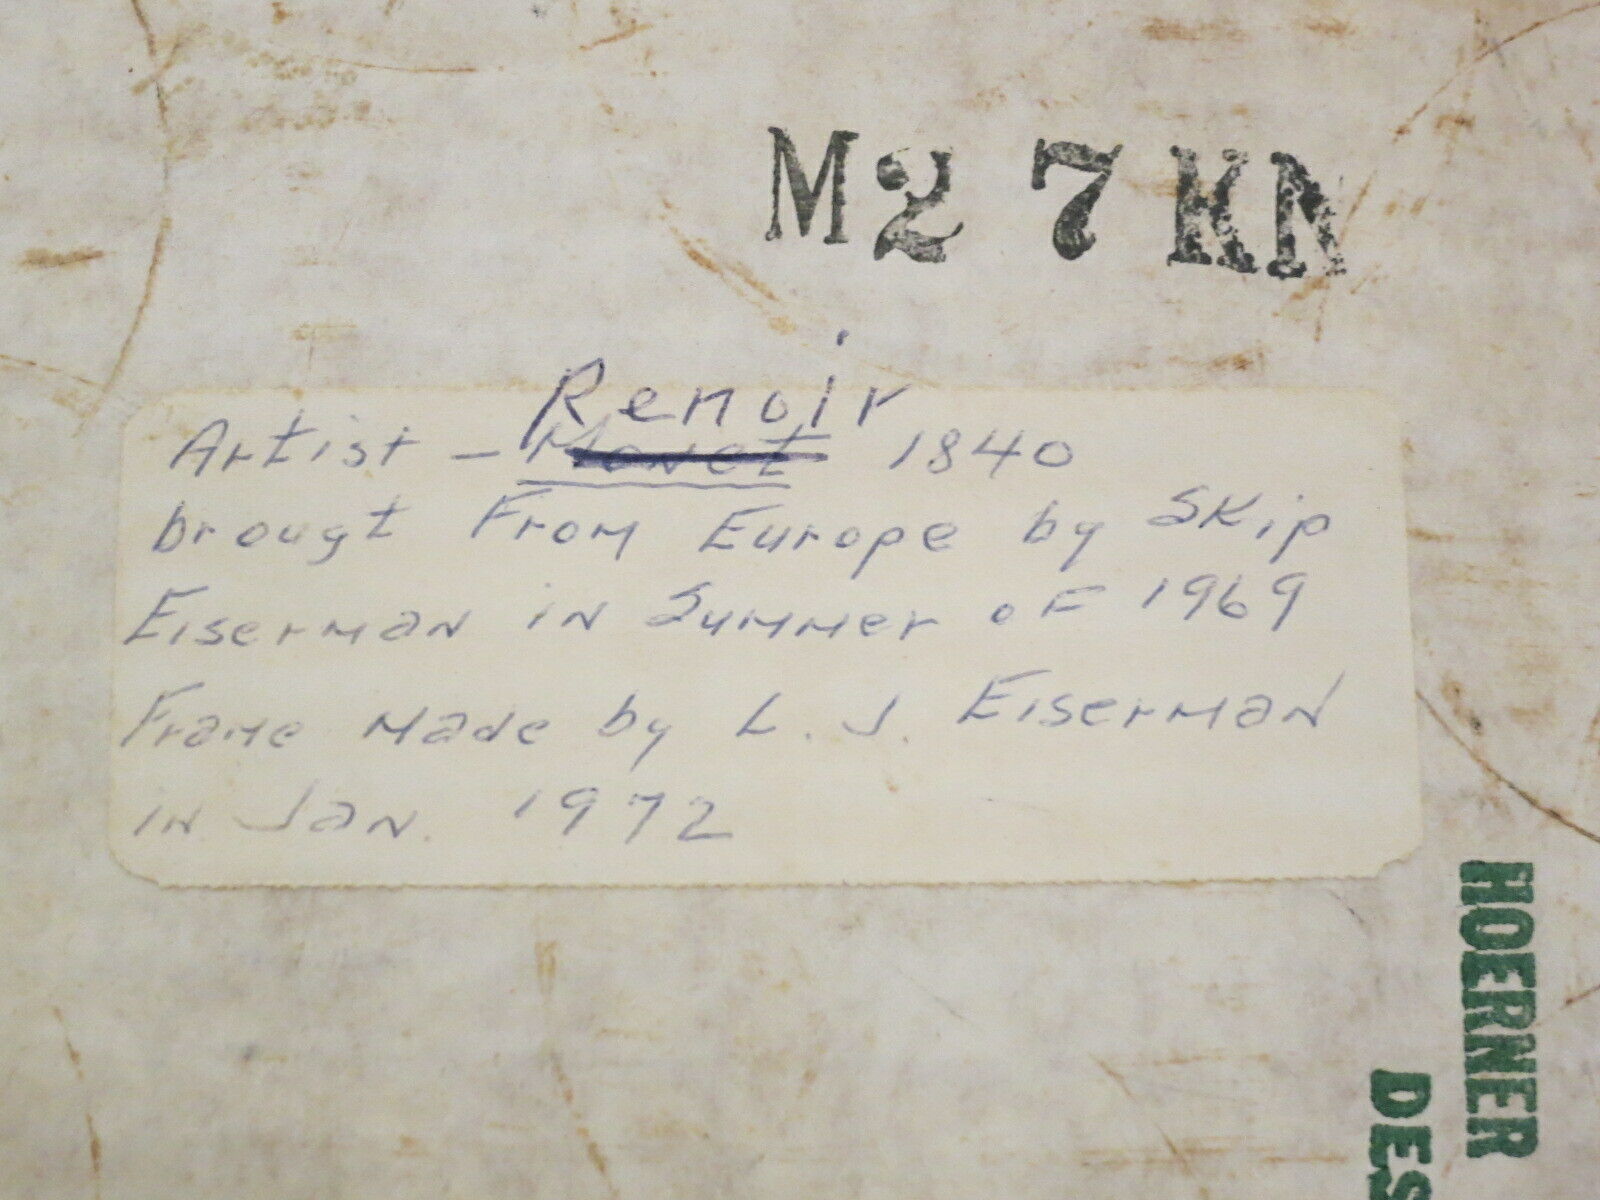 M27KN
Renoir
Artist - Monet 1840
brougt From Europe by Skip
Eiserman in Summer of 1969
Frame made by L. J. Eiserman
in Jan. 1972
HOERNER
DES